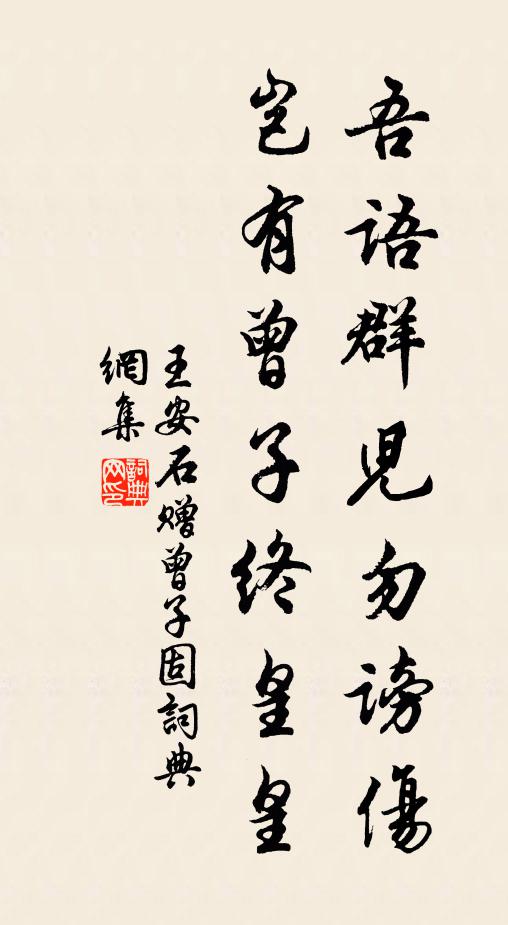 吾語群兒勿謗傷
豈有曾子終皇皇
王安石贈曾子固詞典
網集
詞典
网印